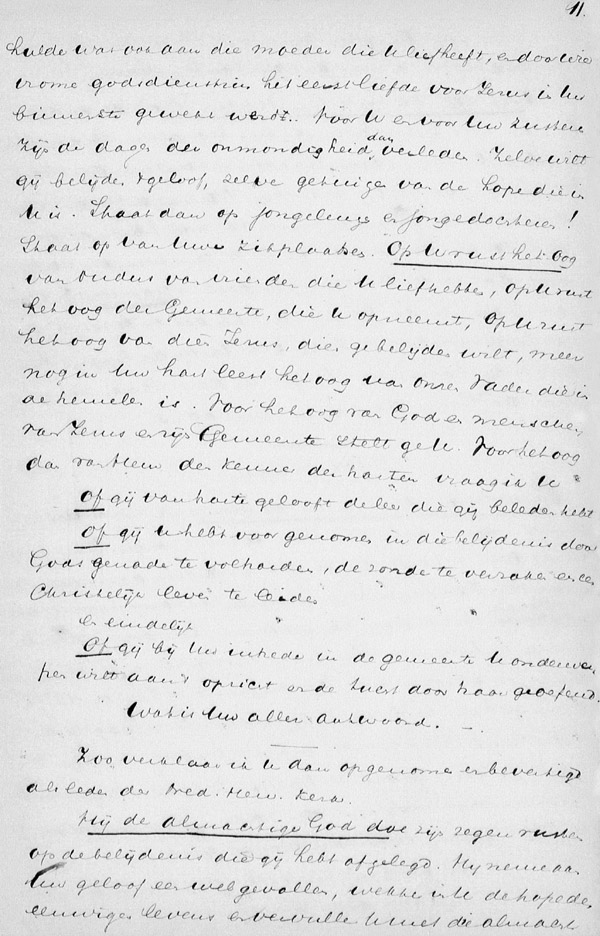 11.
hulde was ook aan die moeder die U liefheeft, en door wie
vrome godsdienstzin het eerst liefde voor Jezus in Uw
binnenste gewekt werdt. Voor U en voor Uw zusteren
zijn de dagen der onmondigheid dan verleden. Zelve wilt
gij belijden 't geloof, zelve getuigen van de hope die in
U is. Staat dan op jongelingen en jongedochteren!
Staat op van Uwe zitplaatsen. Op U rust het oog
van ouders van vrienden die U liefhebben, op U rust
het oog der Gemeente, die U opneemt, op U rust
het oog van dien Jezus, dien gij belijden wilt, meer
nog in Uw hart leest het oog van onzen Vader die in
de hemelen is. Voor het oog van God en menschen,
van Jezus en zijn Gemeente stelt ge U. Voor het oog
dan van Hem den kenner der harten vraag ik U
Of gij van harte gelooft de leer die gij beleden hebt
Of gij U hebt voorgenomen in die belijdenis door
Gods genade te volharden, de zonde te verzaken en een
Christelijk leven te leiden
en eindelijk
Of gij bij Uw intrede in de gemeente U onderwer-
pen wilt aan 't opzicht en de tucht door haar geoefend.
Wat is Uw aller antwoord.
Zoo verklaar ik U dan opgenomen en bevestigd
als leden der Ned. Herv. Kerk.
Hij de almachtige God doe zijn zegen rusten
op de belijdenis die gij hebt afgelegd. Hij neme aan
Uw geloof een welgevallen, wekke in U de hope des
eeuwigen levens en vervulle U met die almacht